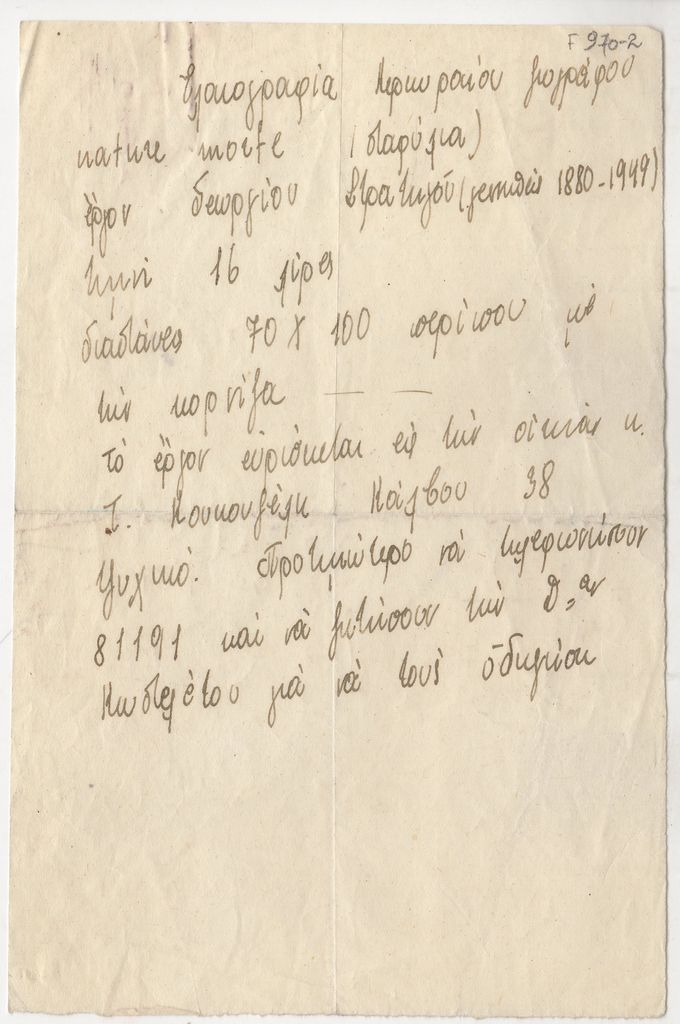 F 970-2
Ἐλαιογραφία Κερκυραίου ζωγράφου
nature morte (σταφύλια)
ἔργον Γεωργίου Στρατηγοῦ (γεννηθείς 1880-1949)
τιμή 16 λίρες
διαστάσεις 70 Χ 100 περίπου μέ
τήν κορνίζα — —
τό ἔργον εὑρίσκεται εἰς τήν οἰκίαν κ.
Ι. Κάλβου 38
Ψυχικό. Προτιμώτερο νά τηλεφωνήσουν
81191 καί νά ζητήσουν τήν Δ,α
γιά νά τούς ὁδηγήσει